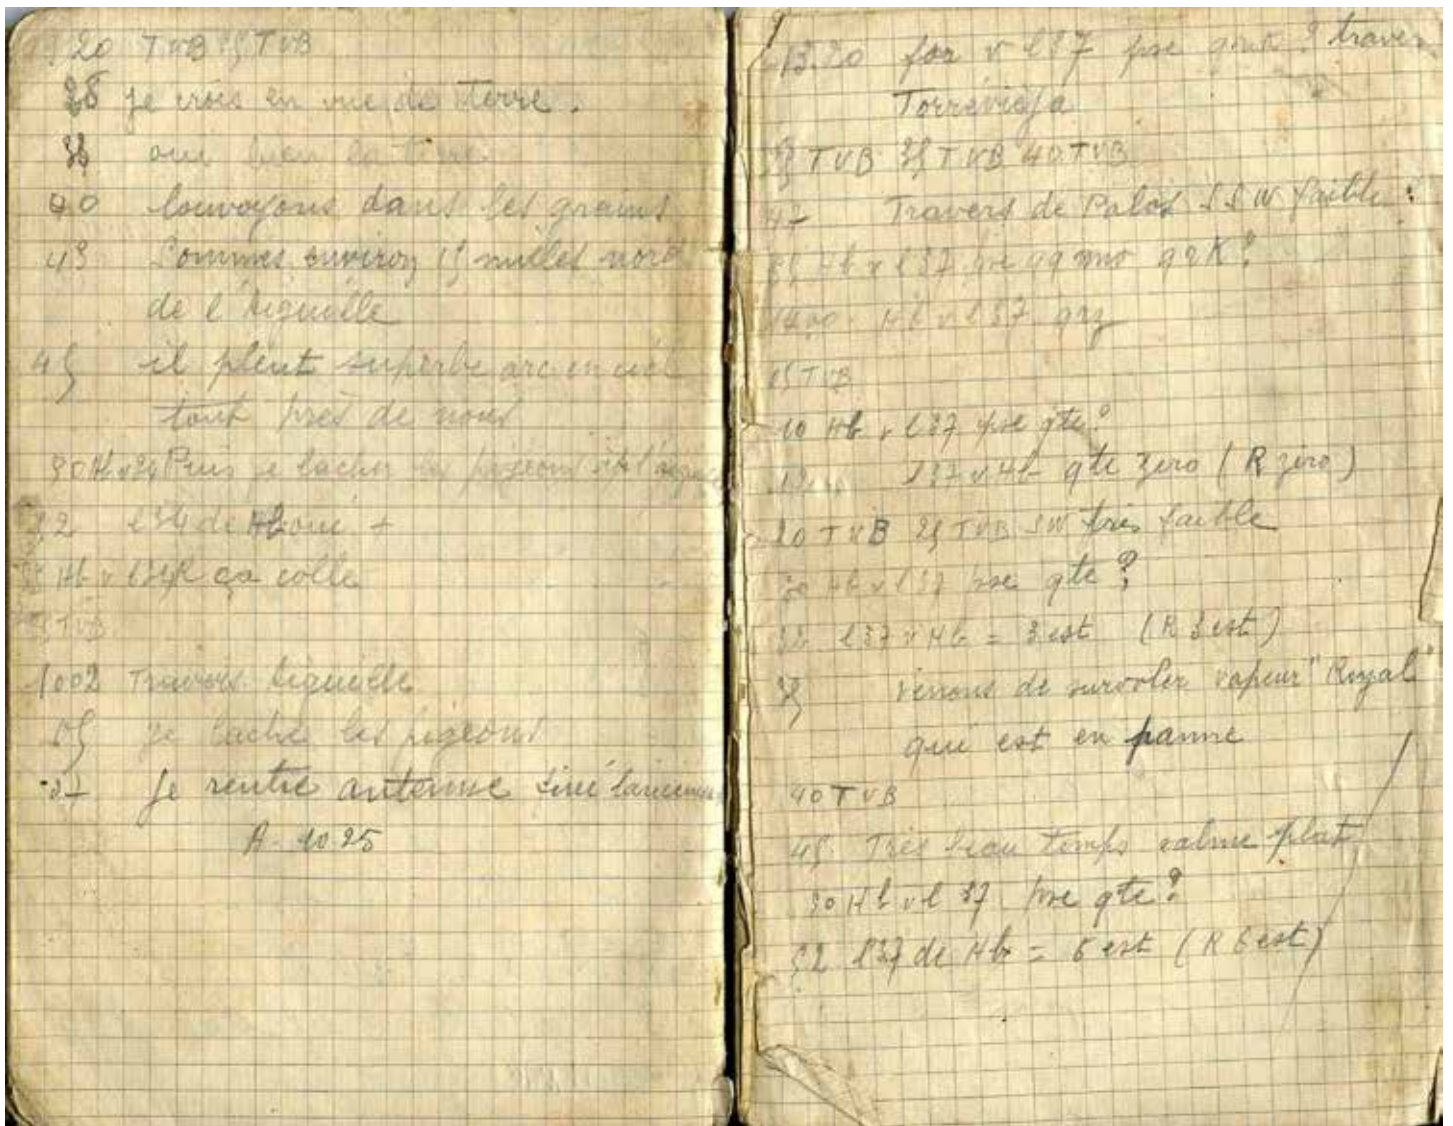 20 TVB 25 TVB
28 je crois en vue de terre.
oui bien la terre
40 louvoyons dans les grains
43 Sommes environ 15 milles nord
de l'Aiguille
45 il pleut superbe arc en ciel
tout près de nous
50 Hb v Puis je lacher les pigeons
52 l34 de Hb oui +
Hb v l34 R ça colle
TVB
1002 Travers Aiguille
05 je lache les pigeons
07 je rentre antenne
A. 10.25
13.20 v l37 pse travers
Torrevieja
TVB 35 TVB 40 TVB
47 Travers de Palos SSW faible
Hb v l37 pse qrk?
1400 Hb v l37
05 TVB
10 Hb v l37 pse qte?
l37 v Hb qte zero (R zero)
20 TVB 25 TVB SW très faible
30 Hb v l37 pse qte?
32 l37 v Hb = 3 est (R 3 est)
35 venons de survoler vapeur "Royal"
qui est en panne
40 TVB
45 Très beau temps calme plat
50 Hb v l37 pse qte?
52 l37 de Hb = 6 est (R 6 est)